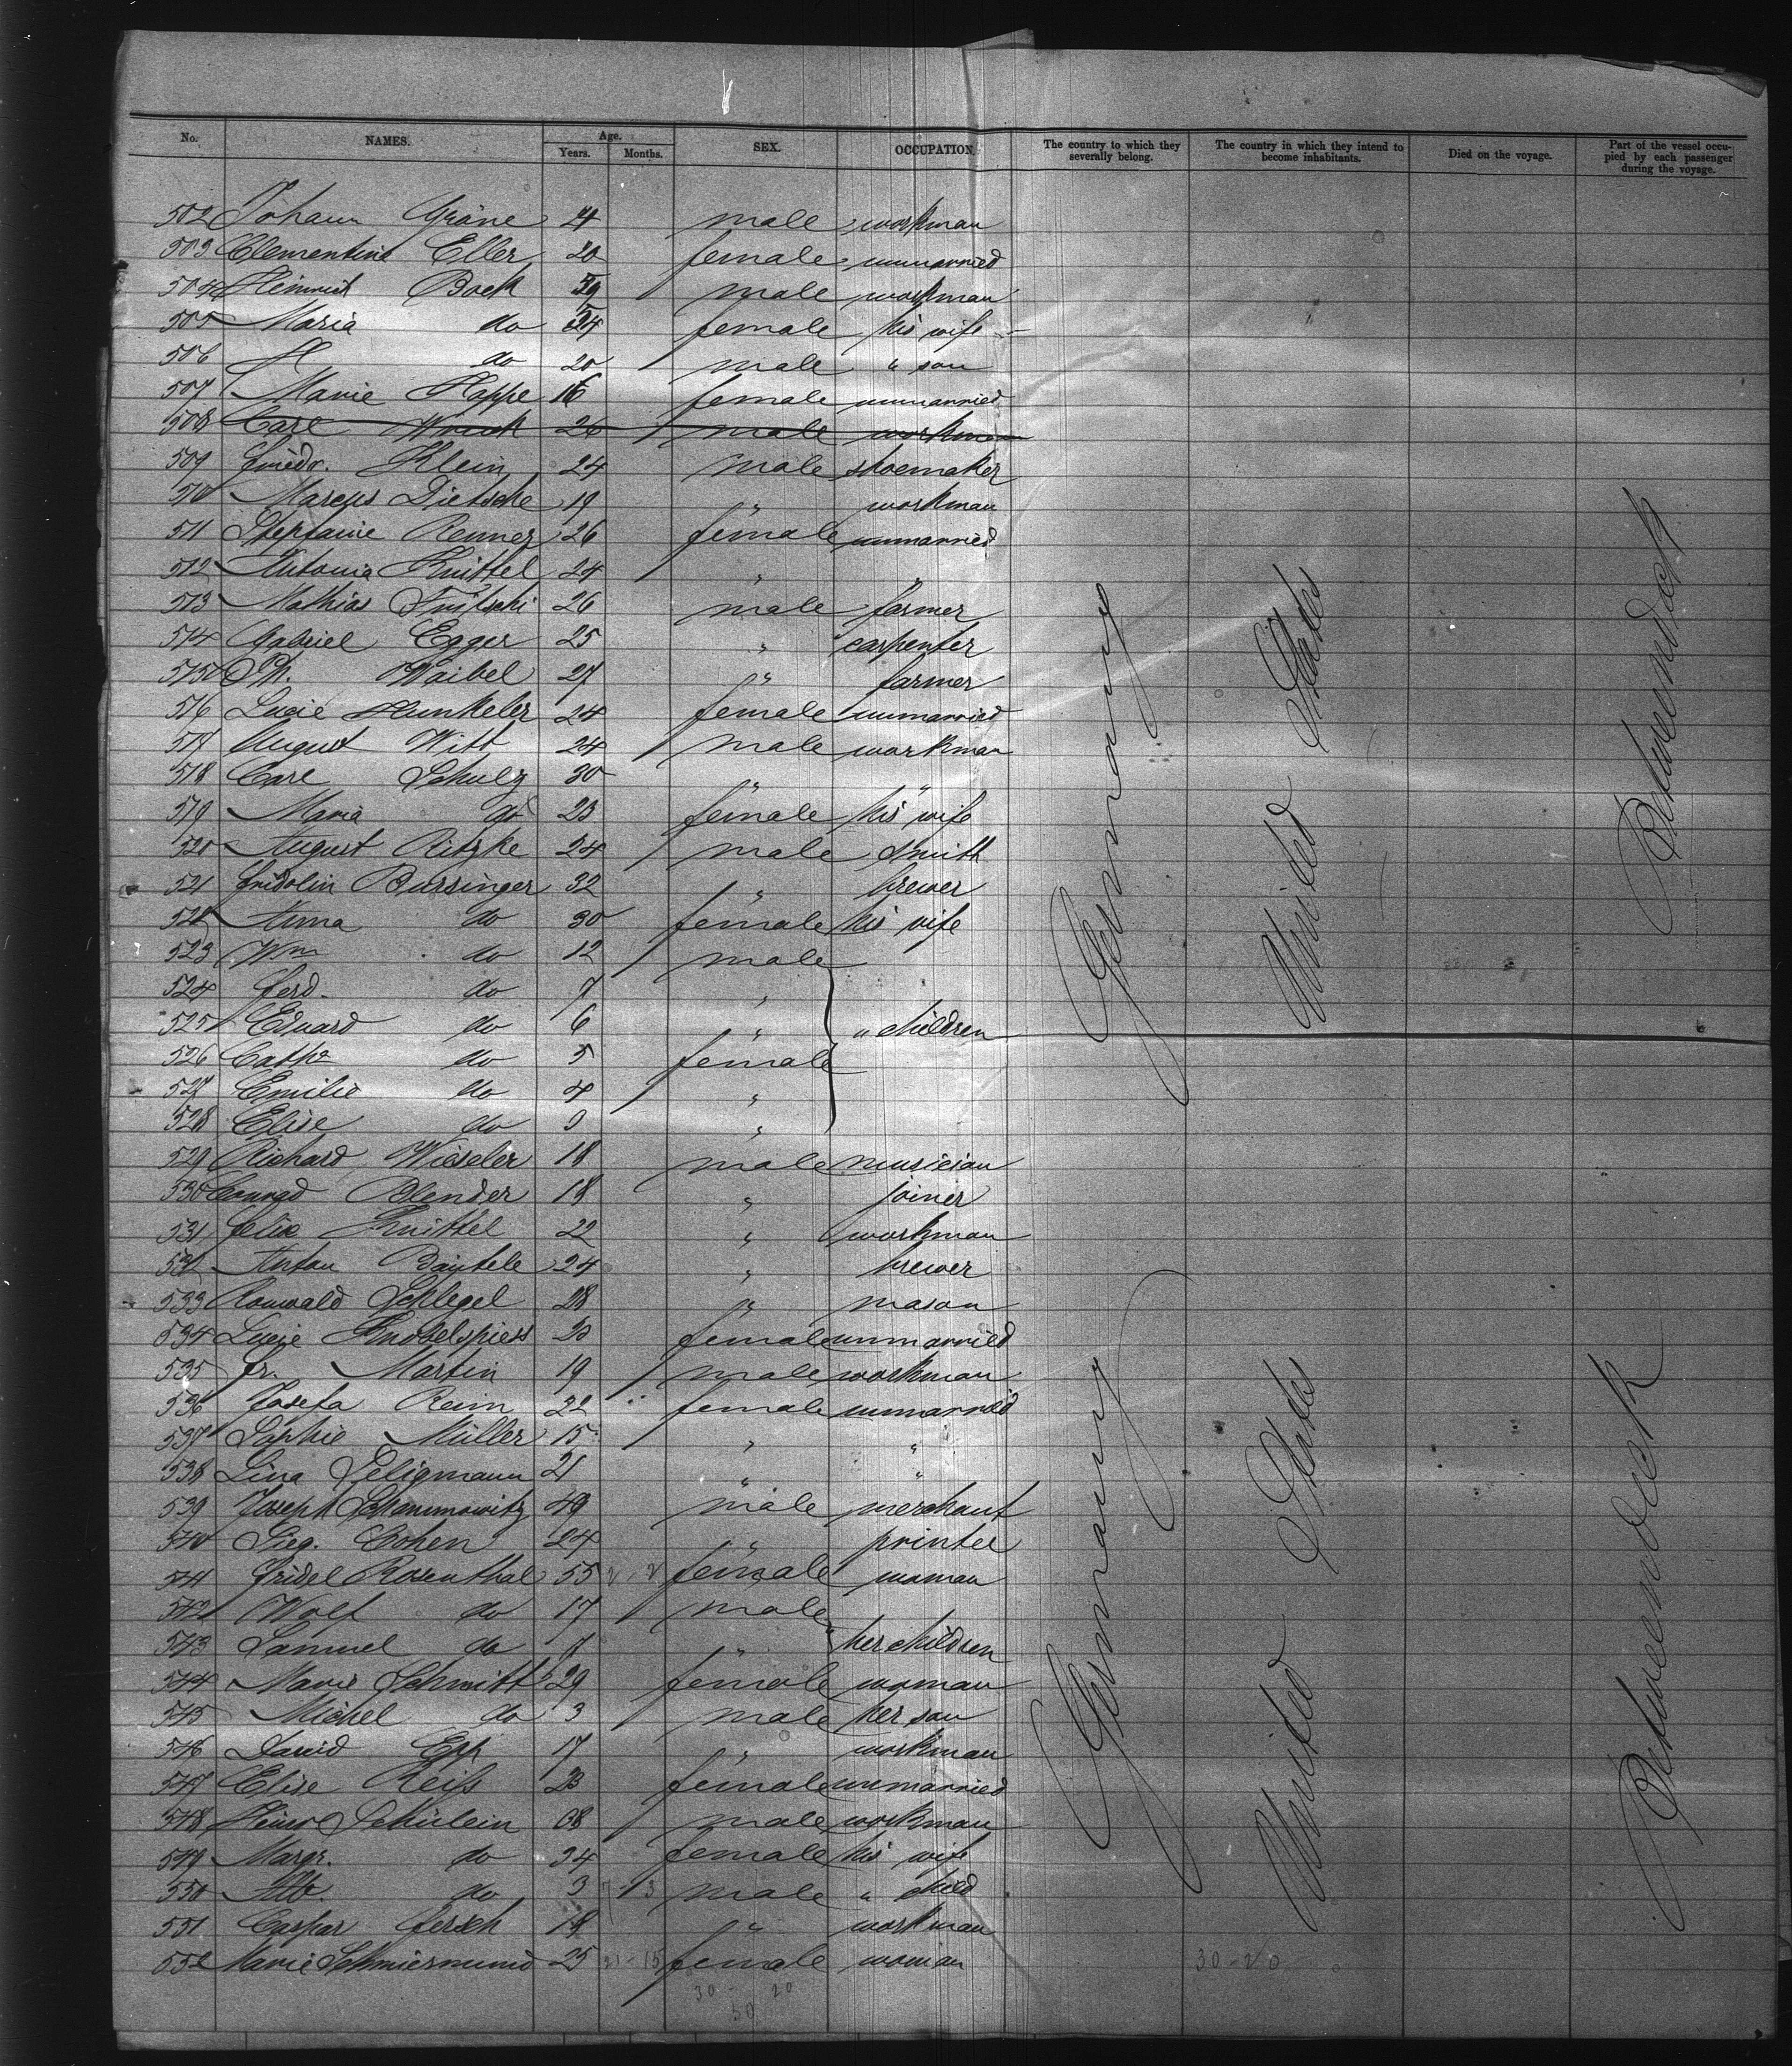 No. NAMES. Age. Years. Months. SEX. OCCUPATION. The country to which they severally belong. The country in which they intend to become inhabitants. Died on the voyage. Part of the vessel occupied by each passenger during the voyage.
502 Johann Gräne male workman
503 Clementine Eller 20 female unmarried
504 Heinrich Bock male workman
505 Maria do female his wife
506 H do 20 male " son
507 Marie Hoppe 16 female unmarried
508 Carl 26 male workman
509 Friedr. Klein 24 male shoemaker
510 Marcus Dietsche 19 " workman
511 Stephanie Renner 26 female unmarried
512 Antonia Knittel 24 " "
513 Mathias Fritschi 26 male farmer
514 Gabriel Egger 25 " carpenter
515 Waibel 27 " farmer
516 Lucie Hunkeler 24 female unmarried
517 August Witt 24 male workman
518 Carl Schulz 30 " "
519 Maria do 23 female his wife
520 August Ritzke 24 male smith
521 Fridolin Bursinger 32 " brewer
522 Anna do 30 female his wife
523 Wm do 12 male
524 Ferd. do 7 "
525 Eduard do 6 " " children
526 Cath. do 5 female
527 Emilie do 4 "
528 Elise do "
529 Richard Wieseler 18 male musician
530 Conrad Blender 18 " joiner
531 Felix Knittel 22 " workman
532 Anton 24 " brewer
533 Romwald Schlegel 28 " mason
534 Lucie Knobelspiess female unmarried
535 Fr. Martin 19 male workman
536 Josefa Reim 22 female unmarried
537 Sophie Müller 15 " "
538 Lina Seligmann 21 " "
539 Joseph 49 male merchant
540 Sieg. Cohen 24 " printer
541 Fridel Rosenthal 55 female woman
542 Wolf do 17 male
543 Samuel do " her children
544 Marie Schmitt 29 female woman
545 Michel do 3 male her son
546 David 17 " workman
547 Elise Reiss 23 female unmarried
548 Schülein male workman
549 Margr. do 34 female his wife
550 Alb. do 3 male " child
551 Caspar Fersch 18 " workman
552 Marie Schmiermund 25 female woman
Germany United States Betweendeck
Germany United States Betweendeck
30 - 20
30 - 20
50